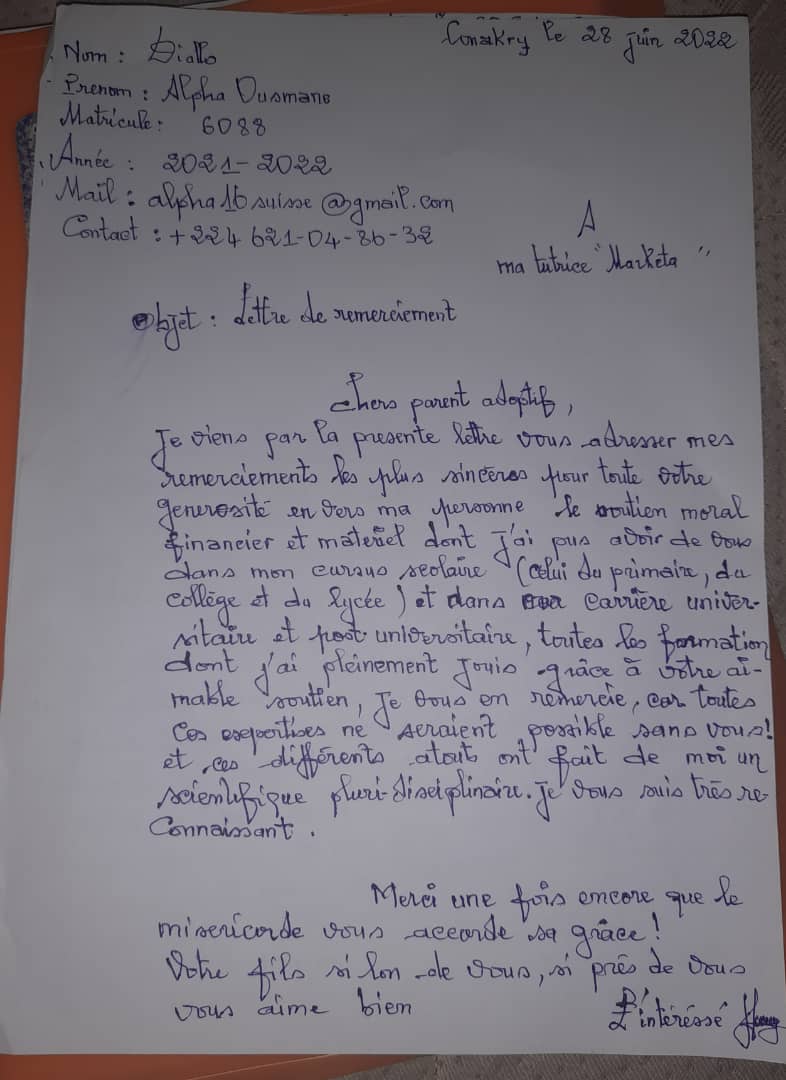 Conakry le 28 juin 2022
Nom : Diallo
Prenom : Alpha Ousmane
Matricule : 6088
Année : 2021-2022
Mail : alpha16suisse@gmail.com
Contact : +224 621-04-86-32
A
ma tutrice "Marketa"
Objet : Lettre de remerciement
Chers parent adoptif,
Je viens par la presente lettre vous adresser mes
remerciements les plus sincères pour toute votre
generosité envers ma personne le soutien moral
financier et materiel dont j'ai pus avoir de vous
dans mon cursus scolaire (celui du primaire, du
collège et du lycée) et dans carrière univer-
sitaire et post universitaire, toutes les formation
dont j'ai pleinement jouis grâce à votre ai-
mable soutien, Je vous en remercie, car toutes
ces expertises ne seraient possible sans vous!
et ces différents atout ont fait de moi un
scientifique pluri-disciplinaire. je vous suis très re-
connaissant.
Merci une fois encore que le
misericorde vous accorde sa grâce!
Votre fils si lon de vous, si près de vous
vous aime bien
L'intéréssé